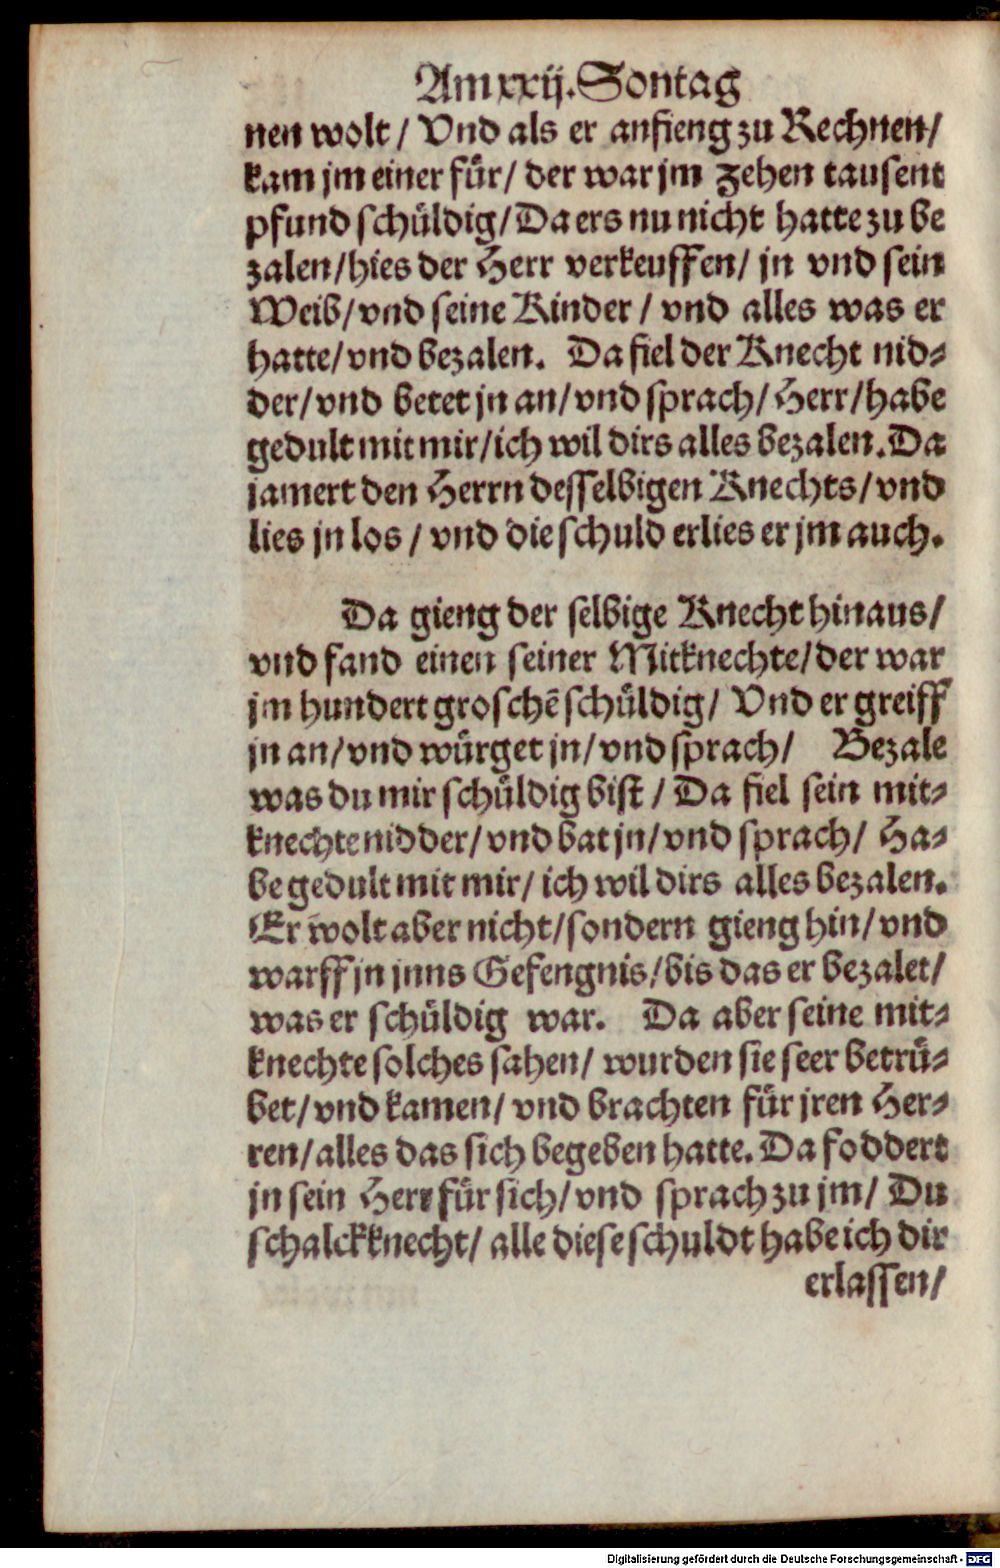 Am xxij. Sontag
nen wolt / Vnd als er anfieng zu Rechnen/
kam jm einer für/ der war jm zehen tausent
pfund schüldig/ Da ers nu nicht hatte zu be
zalen/ hies der Herr verkeuffen/ jn vnd sein
Weib/ vnd seine Kinder / vnd alles was er
hatte/ vnd bezalen. Da fiel der Knecht nid⸗
der/ vnd betet jn an/ vnd sprach/ Herr/ habe
gedult mit mir/ ich wil dirs alles bezalen. Da
jamert den Herrn desselbigen Knechts/ vnd
lies jn los / vnd die schuld erlies er jm auch.
Da gieng der selbige Knecht hinaus/
vnd fand einen seiner Mitknechte/ der war
jm hundert groschē schüldig/ Vnd er greiff
jn an/ vnd würget jn/ vnd sprach/ Bezale
was du mir schüldig bist / Da fiel sein mit⸗
knechte nidder/ vnd bat jn/ vnd sprach/ Ha⸗
be gedult mit mir/ ich wil dirs alles bezalen.
Er wolt aber nicht/ sondern gieng hin/ vnd
warff jn jnns Gefengnis/ bis das er bezalet/
was er schüldig war. Da aber seine mit⸗
knechte solches sahen/ wurden sie seer betrü⸗
bet/ vnd kamen/ vnd brachten für jren Her⸗
ren/ alles das sich begeben hatte. Da foddert
jn sein Herr für sich/ vnd sprach zu jm/ Du
schalckknecht/ alle diese schuldt habe ich dir
erlassen/
Digitalisierung gefördert durch die Deutsche Forschungsgemeinschaft - DFG